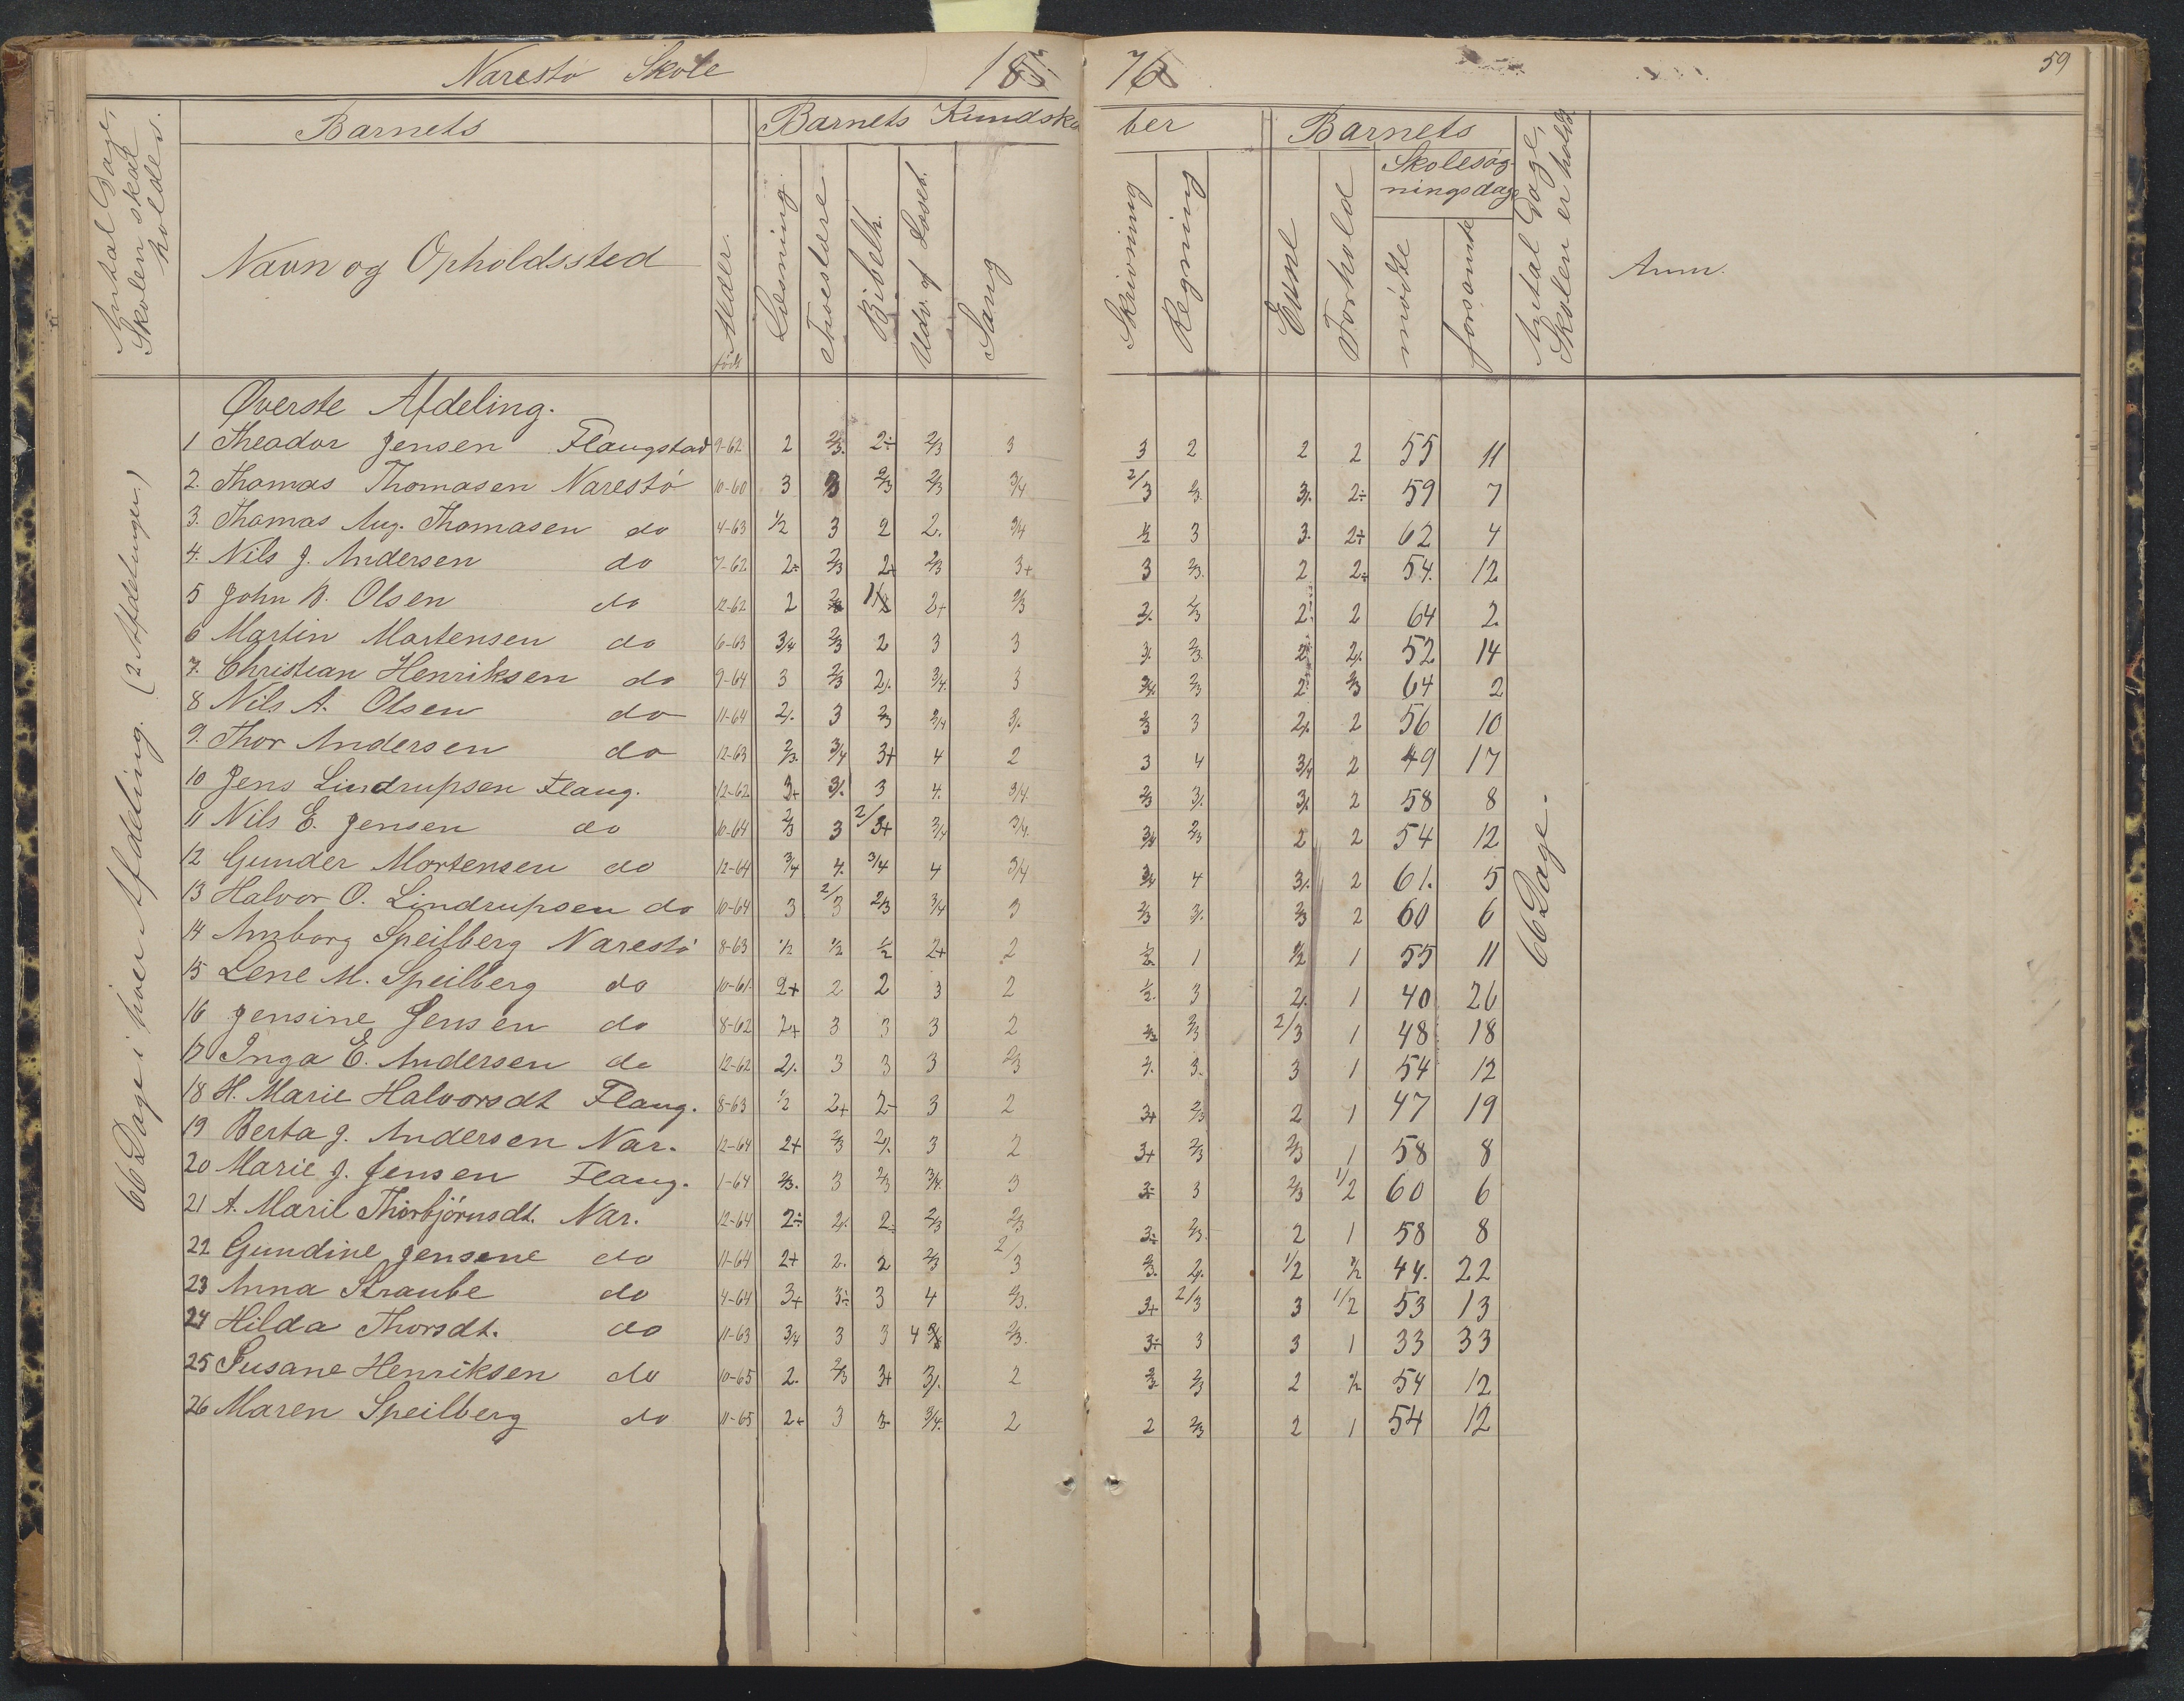 Narestø Skole 18 76 59
Antal Dage, Skolen skal holdes.
Barnets
Navn og Opholdssted
Alder. født
Barnets Kundskaber
Læsning. Troeslære Bibelh. Udv. af Læseb. Sang Skrivning Regning
Barnets
Evne Forhold
Skolesøgningsdage
mødte forsømte
Antal Dage, Skolen er holdt
Anm.
66 Dage i hver Afdeling. (2 Afdelinger.)
Øverste Afdeling.
1 Theodor Jensen Flaugstad 9-62 2 2/3. 2÷ 2/3 3 3 2 2 2 55 11
2. Thomas Thomasen Narestø 10-60 3 3 2/3 2/3 3/4 2/3 2/3. 3. 2÷ 59 7
3. Thomas Aug. Thomasen do 4-63 1/2 3 2 2. 3/4 1/2 3 3. 2+ 62 4
4. Nils J. Andersen do 7-62 2÷ 2/3 2+ 2/3 3+ 3 2/3. 2 2÷ 54. 12
5 John B. Olsen do 12-62 2 2/3 2+ 2/3 2. 2/3 2. 2 64 2.
6 Martin Mortensen do 6-63 3/4 2/3 2 3 3 3. 2/3. 2 2. 52 14
7. Christian Henriksen do 9-64 3 2/3 2. 3/4. 3 3/4. 2/3 2. 2/3 64 2
8 Nils A. Olsen do 11-64 2. 3 2/3 3/4 3. 2/3 3 2. 2 56 10
9. Thor Andersen do 12-63 2/3. 3/4 3+ 4 2 3 4 3/4 2 49 17
10 Jens Lindrupsen Flaug. 12-62 3+ 3. 3 4. 3/4. 2/3 3. 3. 2 58 8
11 Nils E. Jensen do 10-64 2/3 3 2/3+ 3/4 3/4. 3/4 2/3 2 2 54 12
12 Gunder Mortensen do 12-64 3/4 4. 3/4 4 3/4 3/4 4 3. 2 61. 5
13 Halvor O. Lindrupsen do 10-64 3 2/3 2/3 3/4 3 2/3 3. 2/3 2 60 6
14 Amborg Speilberg Narestø 8-63 1/2 1/2 1/2 2+ 2 1/2 1 1/2 1 55 11
15 Lene M. Speilberg do 10-61. 2+ 2 2 3 2 1/2. 3 2. 1 40 26
16 Jensine Jensen do 8-62 2+ 3 3 3 2 2/3 2/3 2/3 1 48 18
17 Inga E. Andersen do 12-62 2. 3 3 3 2/3 3. 3. 3 1 54 12
18 H. Marie Halvorsdt Flaug. 8-63 1/2 2+ 2÷ 3 2 3+ 2/3 2 1 47 19
19 Berta J. Andersen Nar. 12-64 2+ 2/3 2. 3 2 3+ 2/3 2/3 1 58 8
20 Marie J. Jensen Flaug. 1-64 2/3. 3 2/3 3/4. 3 3÷ 3 2/3 1/2 60 6
21 A. Marie Thorbjørnsdt. Nar. 12-64 2÷ 2. 2÷ 2/3 2/3 3÷ 2/3. 2 1 58 8
22 Gundine Jensene do 11-64 2+ 2. 2 2/3 2/3 2/3. 2. 1/2 1/2 44. 22
23 Anna Straube do 4-64 3+ 3÷ 3 4 2/3. 3+ 2/3 3 1/2 53 13
24 Hilda Thorsdt. do 11-63 3/4 3 3 4 2/3. 3÷ 3 3 1 33 33
25 Susane Henriksen do 10-65 2. 2/3 3+ 3. 2 2/3 2/3 2 1/2 54 12
26 Maren Speilberg do 11-65 2+ 3 3. 3/4. 2 2 2/3 2 1 54 12
66 Dage.